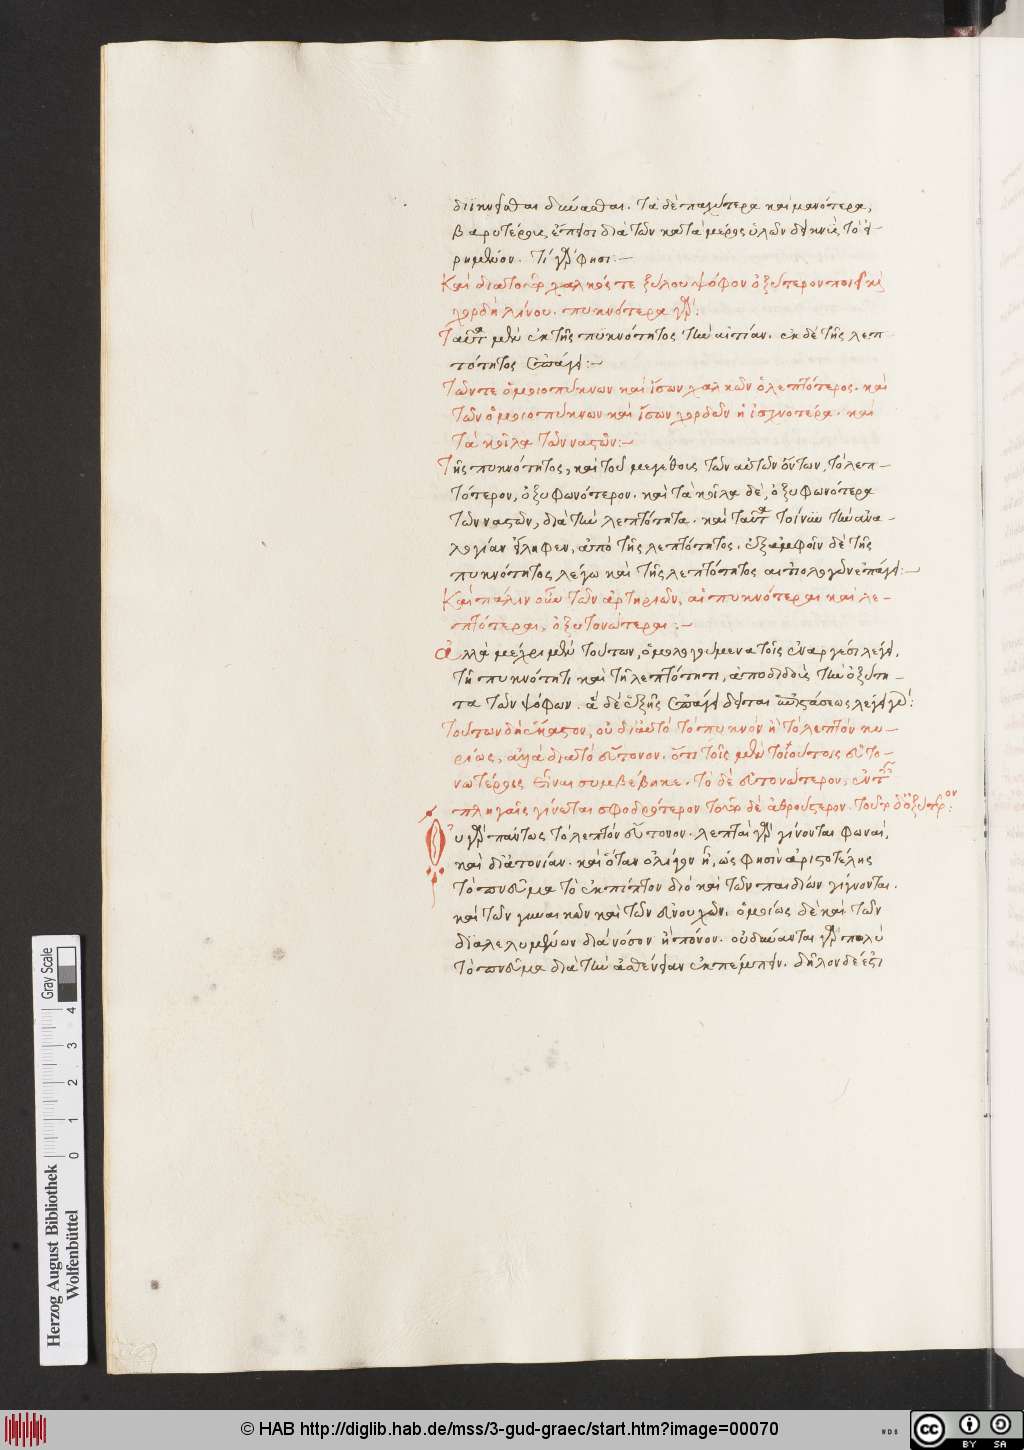 διϊκνεῖσθαι δύνασθαι. τὰ δὲ παχύτερα καὶ μανότερα,
βαρυτέρους, ἔπεισι διὰ τῶν κατὰ μέρος ὅλων δεικνὺς τὸ εἰ-
ρημένον. τί γάρ φησι:-
Καὶ διὰ τοῦτο χαλκός τε ξύλου ψόφον ὀξύτερον ποιεῖ καὶ
χορδὴ λίνου. πυκνότερα γάρ:
Ταῦτα μὲν ἐκ τῆς πυκνότητος τὴν αἰτίαν. ἐκ δὲ τῆς λεπ-
τότητος ἐπάγει:-
Τῶν τε ὁμοιοπύκνων καὶ ἴσων χαλκῶν ὁ λεπτότερος. καὶ
τῶν ὁμοιοπύκνων καὶ ἴσων χορδῶν ἡ ἰσχνοτέρα. καὶ
τὰ κοῖλα τῶν ναστῶν:-
Τῆς πυκνότητος, καὶ τοῦ μεγέθους τῶν αὐτῶν ὄντων, τὸ λεπ-
τότερον, ὀξυφωνότερον. καὶ τὰ κοῖλα δὲ, ὀξυφωνότερα
τῶν ναστῶν, διὰ τὴν λεπτότητα. καὶ ταῦτα τοίνυν τὴν ἀνα-
λογίαν εἴληφεν, ἀπὸ τῆς λεπτότητος. ἐξ ἀμφοῖν δὲ τῆς
πυκνότητος λέγω καὶ τῆς λεπτότητος αἰτιολογῶν ἐπάγει:-
Καὶ πάλιν οὖν τῶν ἀρτηριῶν, αἱ πυκνότεραι καὶ λε-
πτότεραι, ὀξυτονώτεραι:-
Ἀλλὰ μέχρι μὲν τούτων, ὁμολογούμενα τοῖς ἐναργέσι λέγει,
τῇ πυκνότητι καὶ τῇ λεπτότητι, ἀποδιδοὺς τὴν ὀξύτη-
τα τῶν ψόφων. ἃ δὲ ἑξῆς ἐπάγει δεῖται ἐπιστάσεως λέγει γάρ:
Τούτων δὴ ἕκαστον, οὐ διὰ αὐτὸ τὸ πυκνὸν ἢ τὸ λεπτὸν κυ-
ρίως, ἀλλὰ διὰ τὸ εὔτονον. ὅτι τοῖς μὲν τοιούτοις εὐτο-
νωτέροις εἶναι συμβέβηκε. τὸ δὲ εὐτονώτερον, ἐν ταῖς
πληγαῖς γίνεται σφοδρότερον τοῦτο δὲ ἀθρούστερον. τοῦτο δ' ὀξύτερον:
Οὐ γὰρ πάντως τὸ λεπτὸν εὔτονον. λεπταὶ γὰρ γίνονται φωναὶ,
καὶ δι' ἀτονίαν. καὶ ὅταν ὀλίγον ᾖ, ὥς φησιν ἀριστοτέλης
τὸ πνεῦμα τὸ ἐκπίπτον διὸ καὶ τῶν παιδίων γίγνονται.
καὶ τῶν γυναικῶν καὶ τῶν εὐνούχων. ὁμοίως δὲ καὶ τῶν
διαλελυμένων διὰ νόσον ἢ πόνον. οὐ δύνανται γὰρ πολὺ
τὸ πνεῦμα διὰ τὴν ἀσθένειαν ἐκπέμπειν. δῆλον δέ ἐστι
Herzog August Bibliothek
Wolfenbüttel
Gray Scale
0 1 2 3 4
© HAB http://diglib.hab.de/mss/3-gud-graec/start.htm?image=00070
WDB
cc BY SA